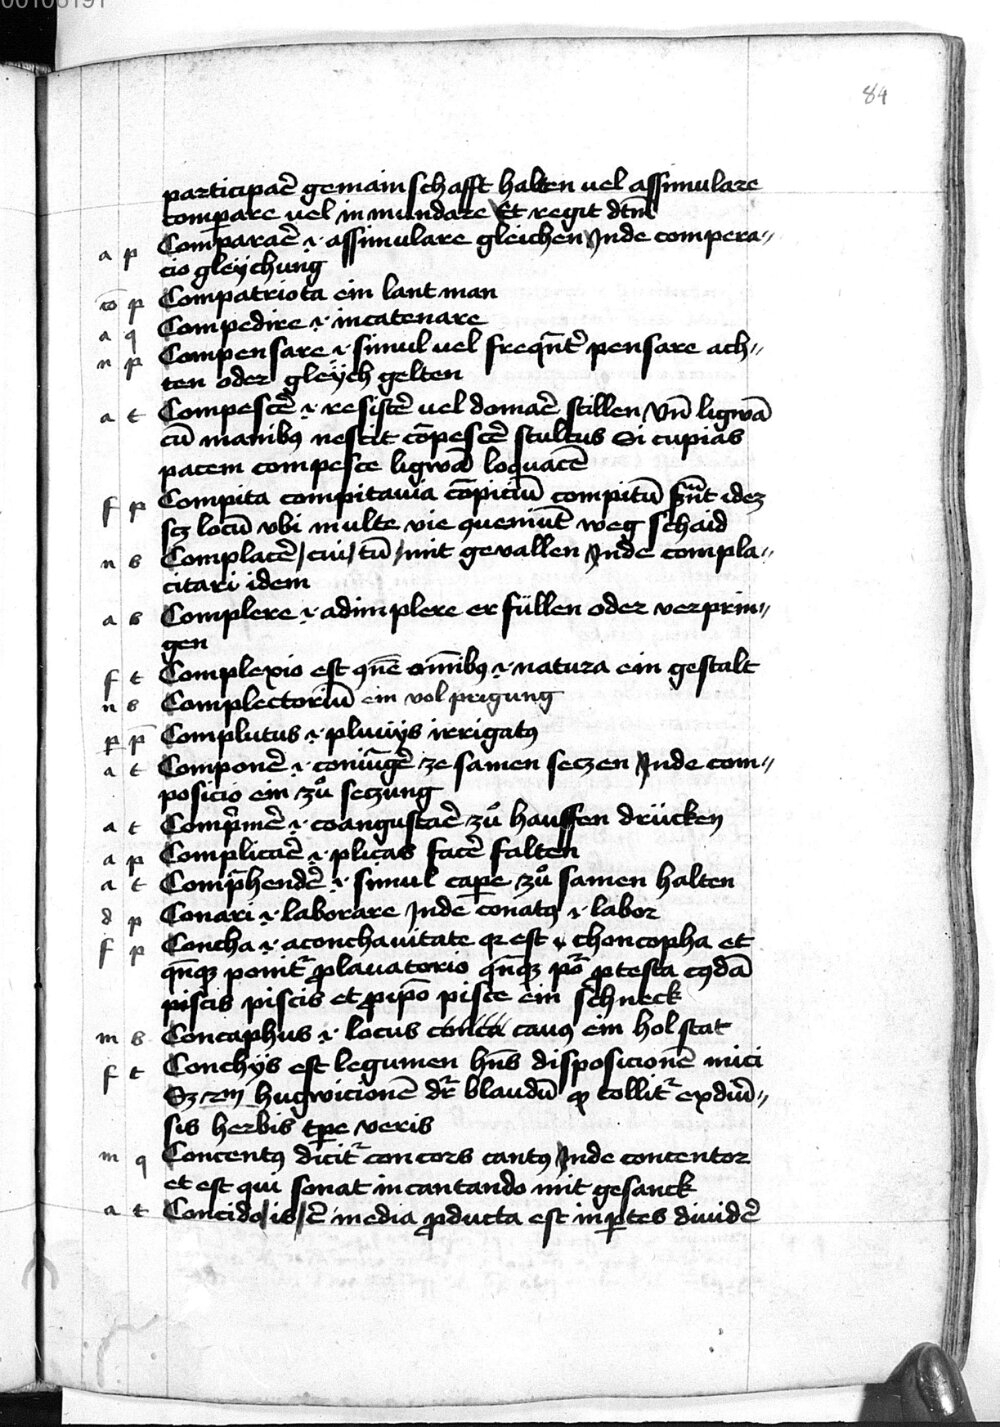 00106191
84
participacē gemainschafft halten uel assimulare
compare uel inmundare Et regit dtm̄
a p Comparacē .i. assimulare gleichen Inde compera〃
cio gleÿchung
cō p Compatriota ein lantman
a q Compedire .i. incatenare
n p Compensare .i. simul uel freqn̄t͛ pensare ach〃
ten oder gleÿch gelten
a t Compescē .i. resistē uel domacē stillen Vn̄ ligwā
cū manibꝯ nescit cōpescē stultus Si cupias
pacem compesce ligwā loquacē
f p Compita compitauia cōpiciū compitū sūt idez
scꝫ locū vbi multe vie queniūt weg schaid
n s Complacē / cui / tū / mit geuallen Inde compla〃
citari idem
a s Complere .i. adimplere erfüllen oder verprin〃
gen
f t Complexio est qn̄e om̄ibꝯ .i. natura ein gestalt
n s Complectoriū ein volpregung
p p̄ Complutus .i. pluuÿs irrigatꝯ
a t Componē .i. coniūgē zesamen seczen Inde com〃
posicio ein zů seczung
a t Comp͛mē .i. coangustacē zů hauffen drücken
a p Complicacē .i. plicas facē falten
a t Comp̄hendē .i. simul cape zůsamen halten
d p Conari .i. laborare Inde conatꝯ .i. labor
f p Concha .i. aconchauitate qr est choncopha et
qn̄qꝫ ponit͛ ꝓlauatorio qn̄qꝫ pō͛ ꝓtesta cꝯdā
piscis piscis et ꝓip̄o pisce ein schneck
m s Concaphus .i. locus conca cauꝯ ein hol stat
f t Conchÿs est legumen hn̄s disposicionē mici
Sꝫ hugwicionē dr̄ blaudū ꝙ tollit͛ exdiū〃
sis herbis tpe veris
m q Concentꝯ dicit͛ concors cantꝯ Inde concentor
et est qui sonat incantando mit gesanck
a t Concido / is / ē media ꝓducta est inꝑtes diuidē